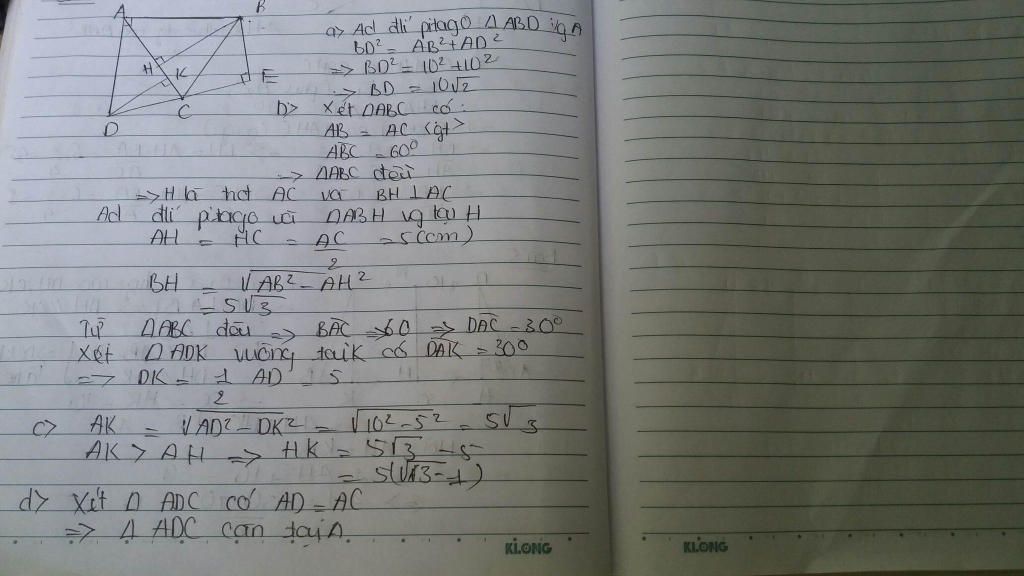 A
B
H
K
E
C
D
a> Ad đlí pitago Δ ABD vg A
BD² = AB² + AD²
=> BD² = 10² + 10²
-> BD = 10√2
b> Xét ΔABC có:
AB = AC <gt>
ABC = 60⁰
-> ΔABC đều
=> H là tđ AC và BH ⊥ AC
Ad đlí pitago với ΔABH vg tại H
AH = HC = AC/2 = 5 (cm)
BH = √AB² - AH²
= 5√3
Từ ΔABC đều => BAC = 60 => DAC = 30⁰
Xét Δ ADK vuông tại K có DAK = 30⁰
=> DK = 1/2 AD = 5
c> AK = √AD² - DK² = √10² - 5² = 5√3
AK > AH => HK = 5√3 - 5
= 5(√3 - 1)
d> Xét Δ ADC có AD = AC
=> Δ ADC cân tại A.
KLONG
KLONG